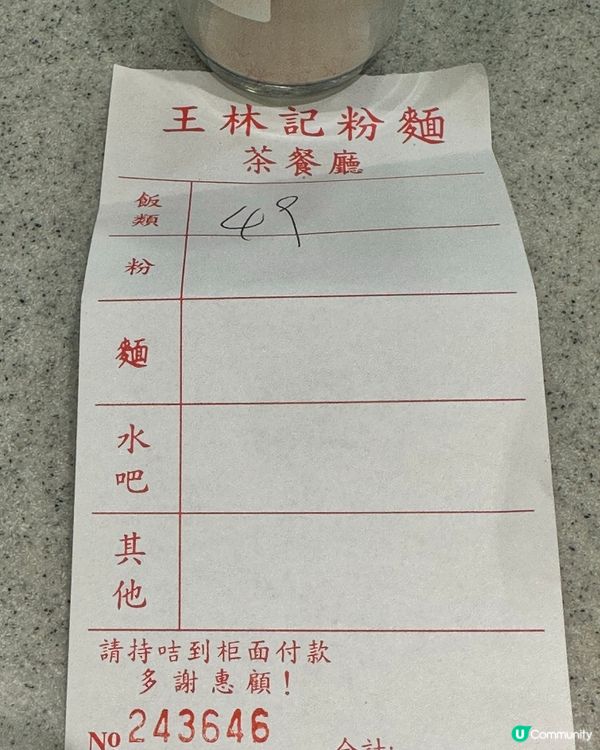 王林記粉麵
茶餐廳
飯類 49
粉
麵
水吧
其他
請持咭到柜面付款
多謝惠顧！
No 243646
合計:
U Community